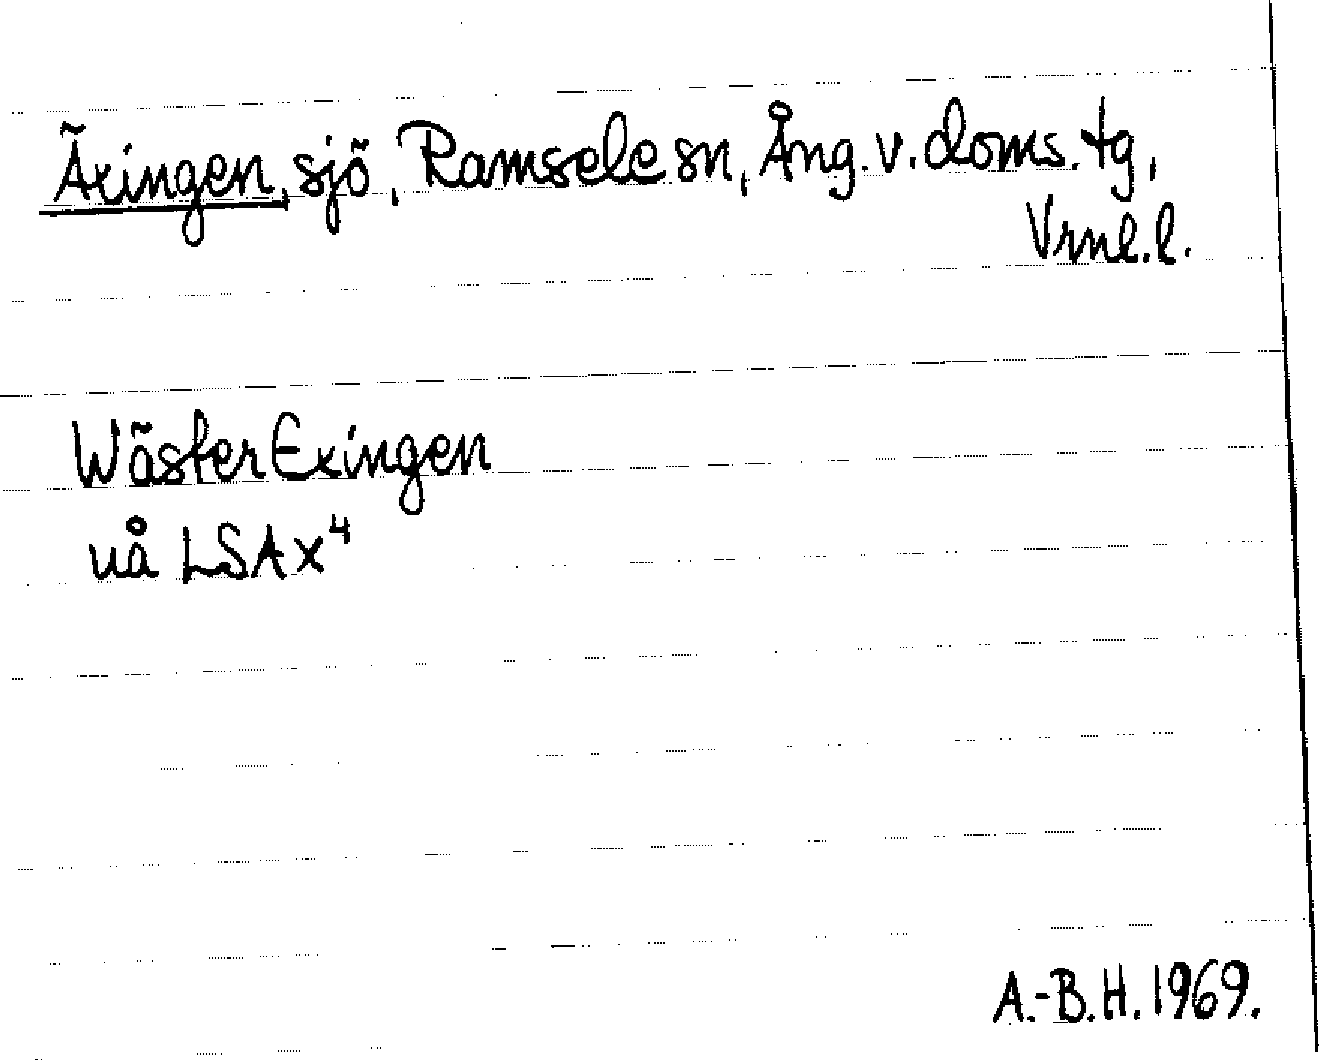 Äxingen, sjö, Ramsele sn, Ång. v. doms. tg,
Vrnl. l.
Wäster Exingen
uå LSA X⁴
A.-B.H. 1969.